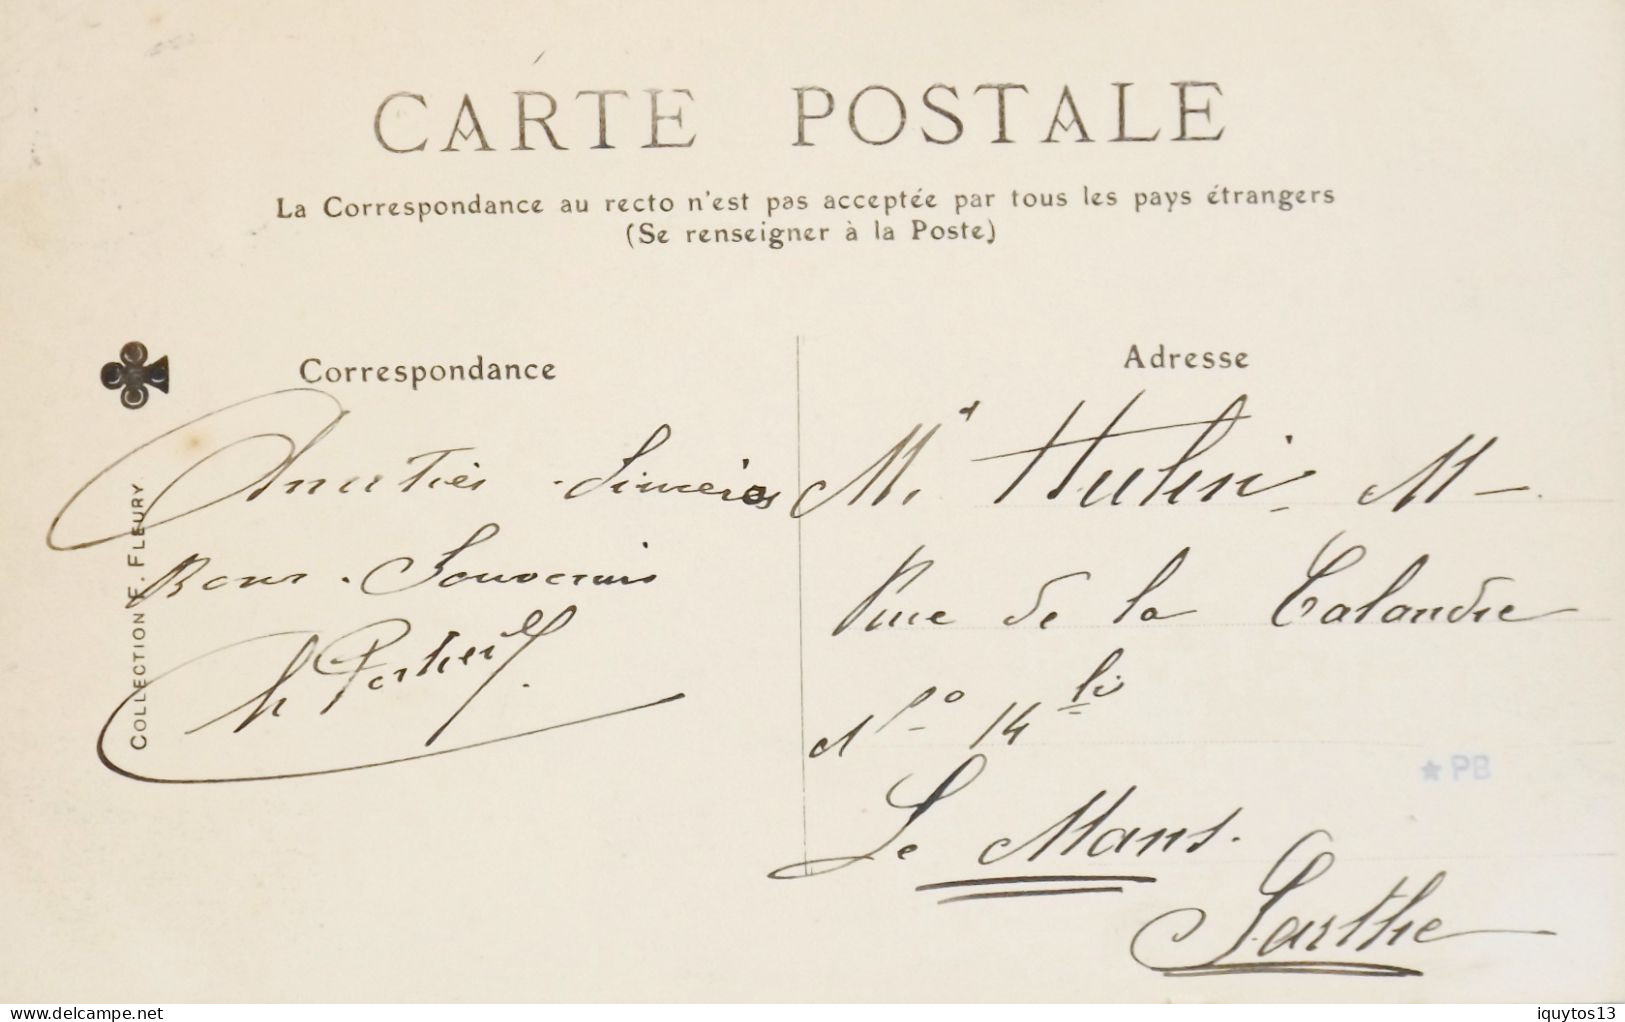 CARTE POSTALE
La Correspondance au recto n'est pas acceptée par tous les pays étrangers
(Se renseigner à la Poste)
Correspondance
Amitiés Sincères
Bons Souvenirs
COLLECTION F. FLEURY
Adresse
Mr Hulin M
Rue de la Calandre
No 14 bis
Le Mans.
Sarthe
★ PB
delcampe.net
iquytos13